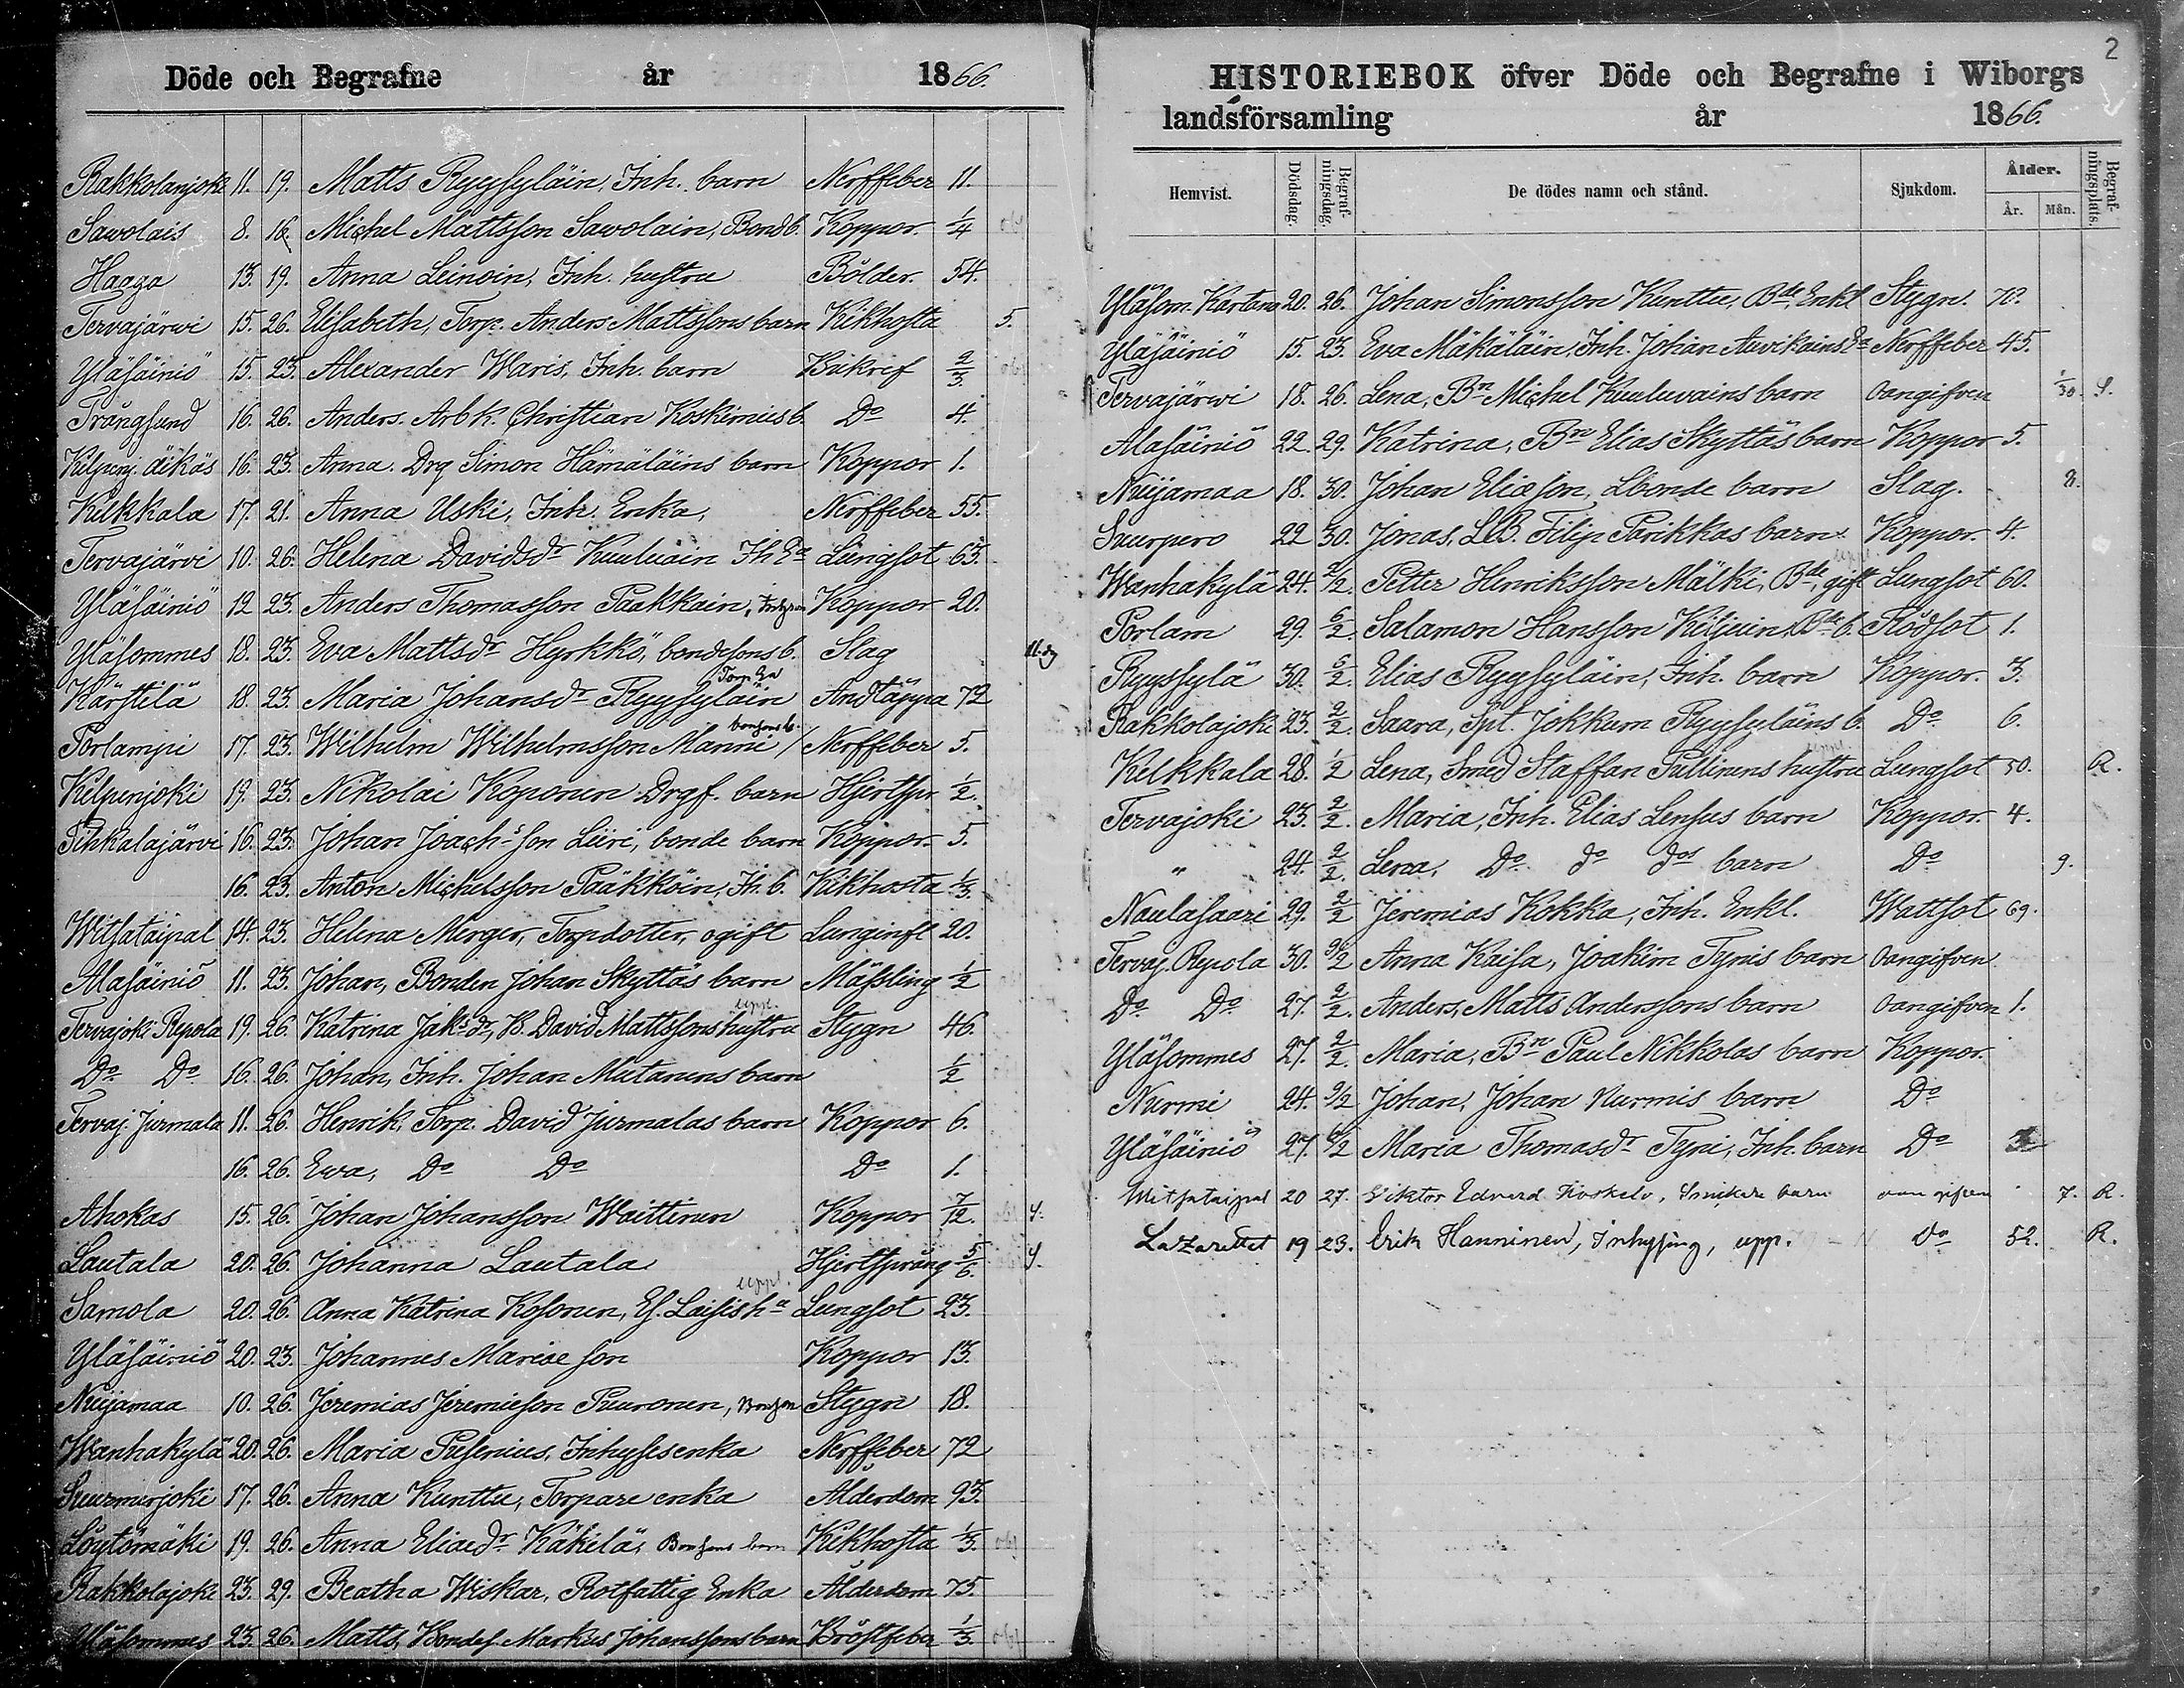 Döde och Begrafne år 1866.
Rakkolanjoki 11. 19. Matts Ryyssyläin, Inh. barn Nerffeber 11.
Sawolais 8. 16. Michel Mattsson Sawolain, Bond b. Koppor. 1/4
Haaga 13. 19. Anna Leinoin, Inh. hustru Bölder. 54.
Tervajärwi 15. 26. Elisabeth, Torp. Anders Mattssons barn Kikhosta 5.
Yläsäiniö 15. 23. Alexander Waris, Inh. barn Bukref 2/3
Trångsund 16. 26. Anders. Arb k. Christian Koskimies b. Do 4.
Kilpenj. äikäs 16. 23. Anna. Drg Simon Hämäläins barn Koppor 1.
Kilkkala 17. 21. Anna Uski, Inh. Enka, Nerffeber 55.
Tervajärvi 10. 26. Helena Davidsdr Kuuluain Ih Ea Lungsot 63.
Yläsäiniö 12 23. Anders Thomasson Paakkain, Koppor 20.
Yläsommes 18. 23. Eva Mattsdr Hyrkkö, bondesons b. Slag 11. dg
Kärstilä 18. 23. Maria Johansdr Ryyssyläin Torp Ea Andtäppa 72
Porlampi 17. 23. Wilhelm Wilhelmsson Manni bonsons b. Nerffeber 5.
Kilpenjoki 19. 23. Nikolai Koponen Drgf. barn Hjertspr. 1/2.
Pihkalajärvi 16. 23. Johan Joachs son Liiri, bonde barn Koppor. 5.
16. 23. Anton Michelsson Pääkköin, Ih. b. Kikhosta 1/3.
Witsataipal 14. 23. Helena Merger, Torpdotter, ogift Lunginfl 20.
Alasäiniö 11. 23. Johan, Bonden Johan Skyttäs barn Mässling 1/2
Tervajok: Repola 19. 26. Katrina Jaks dr, B. David Mattssons hustru uppl. Stygn 46.
Do Do 16. 26. Johan, Inh. Johan Mutanens barn 1/2
Tervaj. Jurmala 11. 26. Henrik, Torp. David Jurmalas barn Koppor 6.
16. 26. Ewa, Do Do Do 1.
Ahokas 15. 26. Johan Johansson Waittinen Koppor 7/12. S.
Lautala 20. 26. Johanna Lautala Hjertsprång 5/6. S.
Samola 20. 26. Anna Katrina Kosonen, Ef. Laisis ha uppl. Lungsot 23.
Yläsäiniö 20. 23. Johannes Mariæ son Koppor 13.
Nuijamaa 10. 26. Jeremias Jeremieson Puuronen, Bonson Stygn 18.
Wanhakylä 20. 26. Maria Pusenius, Inhysesenka Nerffeber 72
Suurmerjoki 17. 26. Anna Kunttu, Torpare enka Alderdom 93.
Löytömäki 19. 26. Anna Eliædr Käkilä, Bonsons barn Kikhosta 1/3.
Rakkolajoki 23. 29. Beatha Wiskar, Rotfattig Enka Ålderdom 75.
Yläsommes 23. 26. Matts, Bondes. Markus Johanssons barn Bröstfeber 1/3.
2
HISTORIEBOK öfver Döde och Begrafne i Wiborgs
landsförsamling år 1866.
Hemvist. Dödsdag. Begrafningsdag. De dödes namn och stånd. Sjukdom. Ålder. År. Mån. Begrafningsplats.
Yläsom. Kartano 20. 26. Johan Simonsson Kunttu, Bde, Enkl Stygn. 70.
Yläsäiniö 15. 23. Eva Mäkäläin, Inh. Johan Auvikains Ea Nerffeber 45.
Tervajärwi 18. 26. Lena, Bn Michel Kuuluvains barn Oangifven 1/30. S.
Alasäiniö 22. 29. Katrina, Bn Elias Skyttäs barn Koppor 5.
Nuijamaa 18. 30. Johan Eliæson, Lbonde barn Slag. 8.
Suurpero 22 30. Jonas, LB. Filip Parikkas barn. Koppor. 4.
Wanhakylä 24. 2/2. Petter Henriksson Mälki, Bde, gift uppl. Lungsot 60.
Porlam 29. 6/2. Salamon Hansson Kiljuin, Bde b. Flödsot 1.
Ryyssylä 30. 6/2. Elias Ryyssyläin, Inh. barn Koppor. 3.
Rakkolajoki 23. 2/2. Saara, Spt. Jokkum Ryyssyläins b. Do 6.
Kelkkala 28. 1/2 Lena, Smed Staffan Pullinens hustru uppl. Lungsot 50. R.
Tervajoki 23. 2/2. Maria, Inh. Elias Lensus barn Koppor. 4.
" 24. 2/2. Lena, Do do dos barn Do 9.
Naulasaari 29. 2/2 Jeremias Kokka, Inh. Enkl. Wattsot 69.
Tervaj. Repola 30. 9/2 Anna Kaisa, Joakim Tynis barn Oangifven
Do Do 27. 2/2. Anders, Matts Anderssons barn Oangifven 1.
Yläsommes 27. 2/2. Maria, Bn Paul Nikkolas barn Koppor.
Nurmi 24. 9/2 Johan, Johan Nurmis barn Do
Yläsäiniö 27. 6/2 Maria Thomasdr Tyni, Inh. barn Do
Witsataipal 20 27. Viktor Edvard Koskelo, Snikare barn oangifven 7. R.
Lazarettet 19 23. Erik Hanninen, Inhysing, upp. do 52. R.